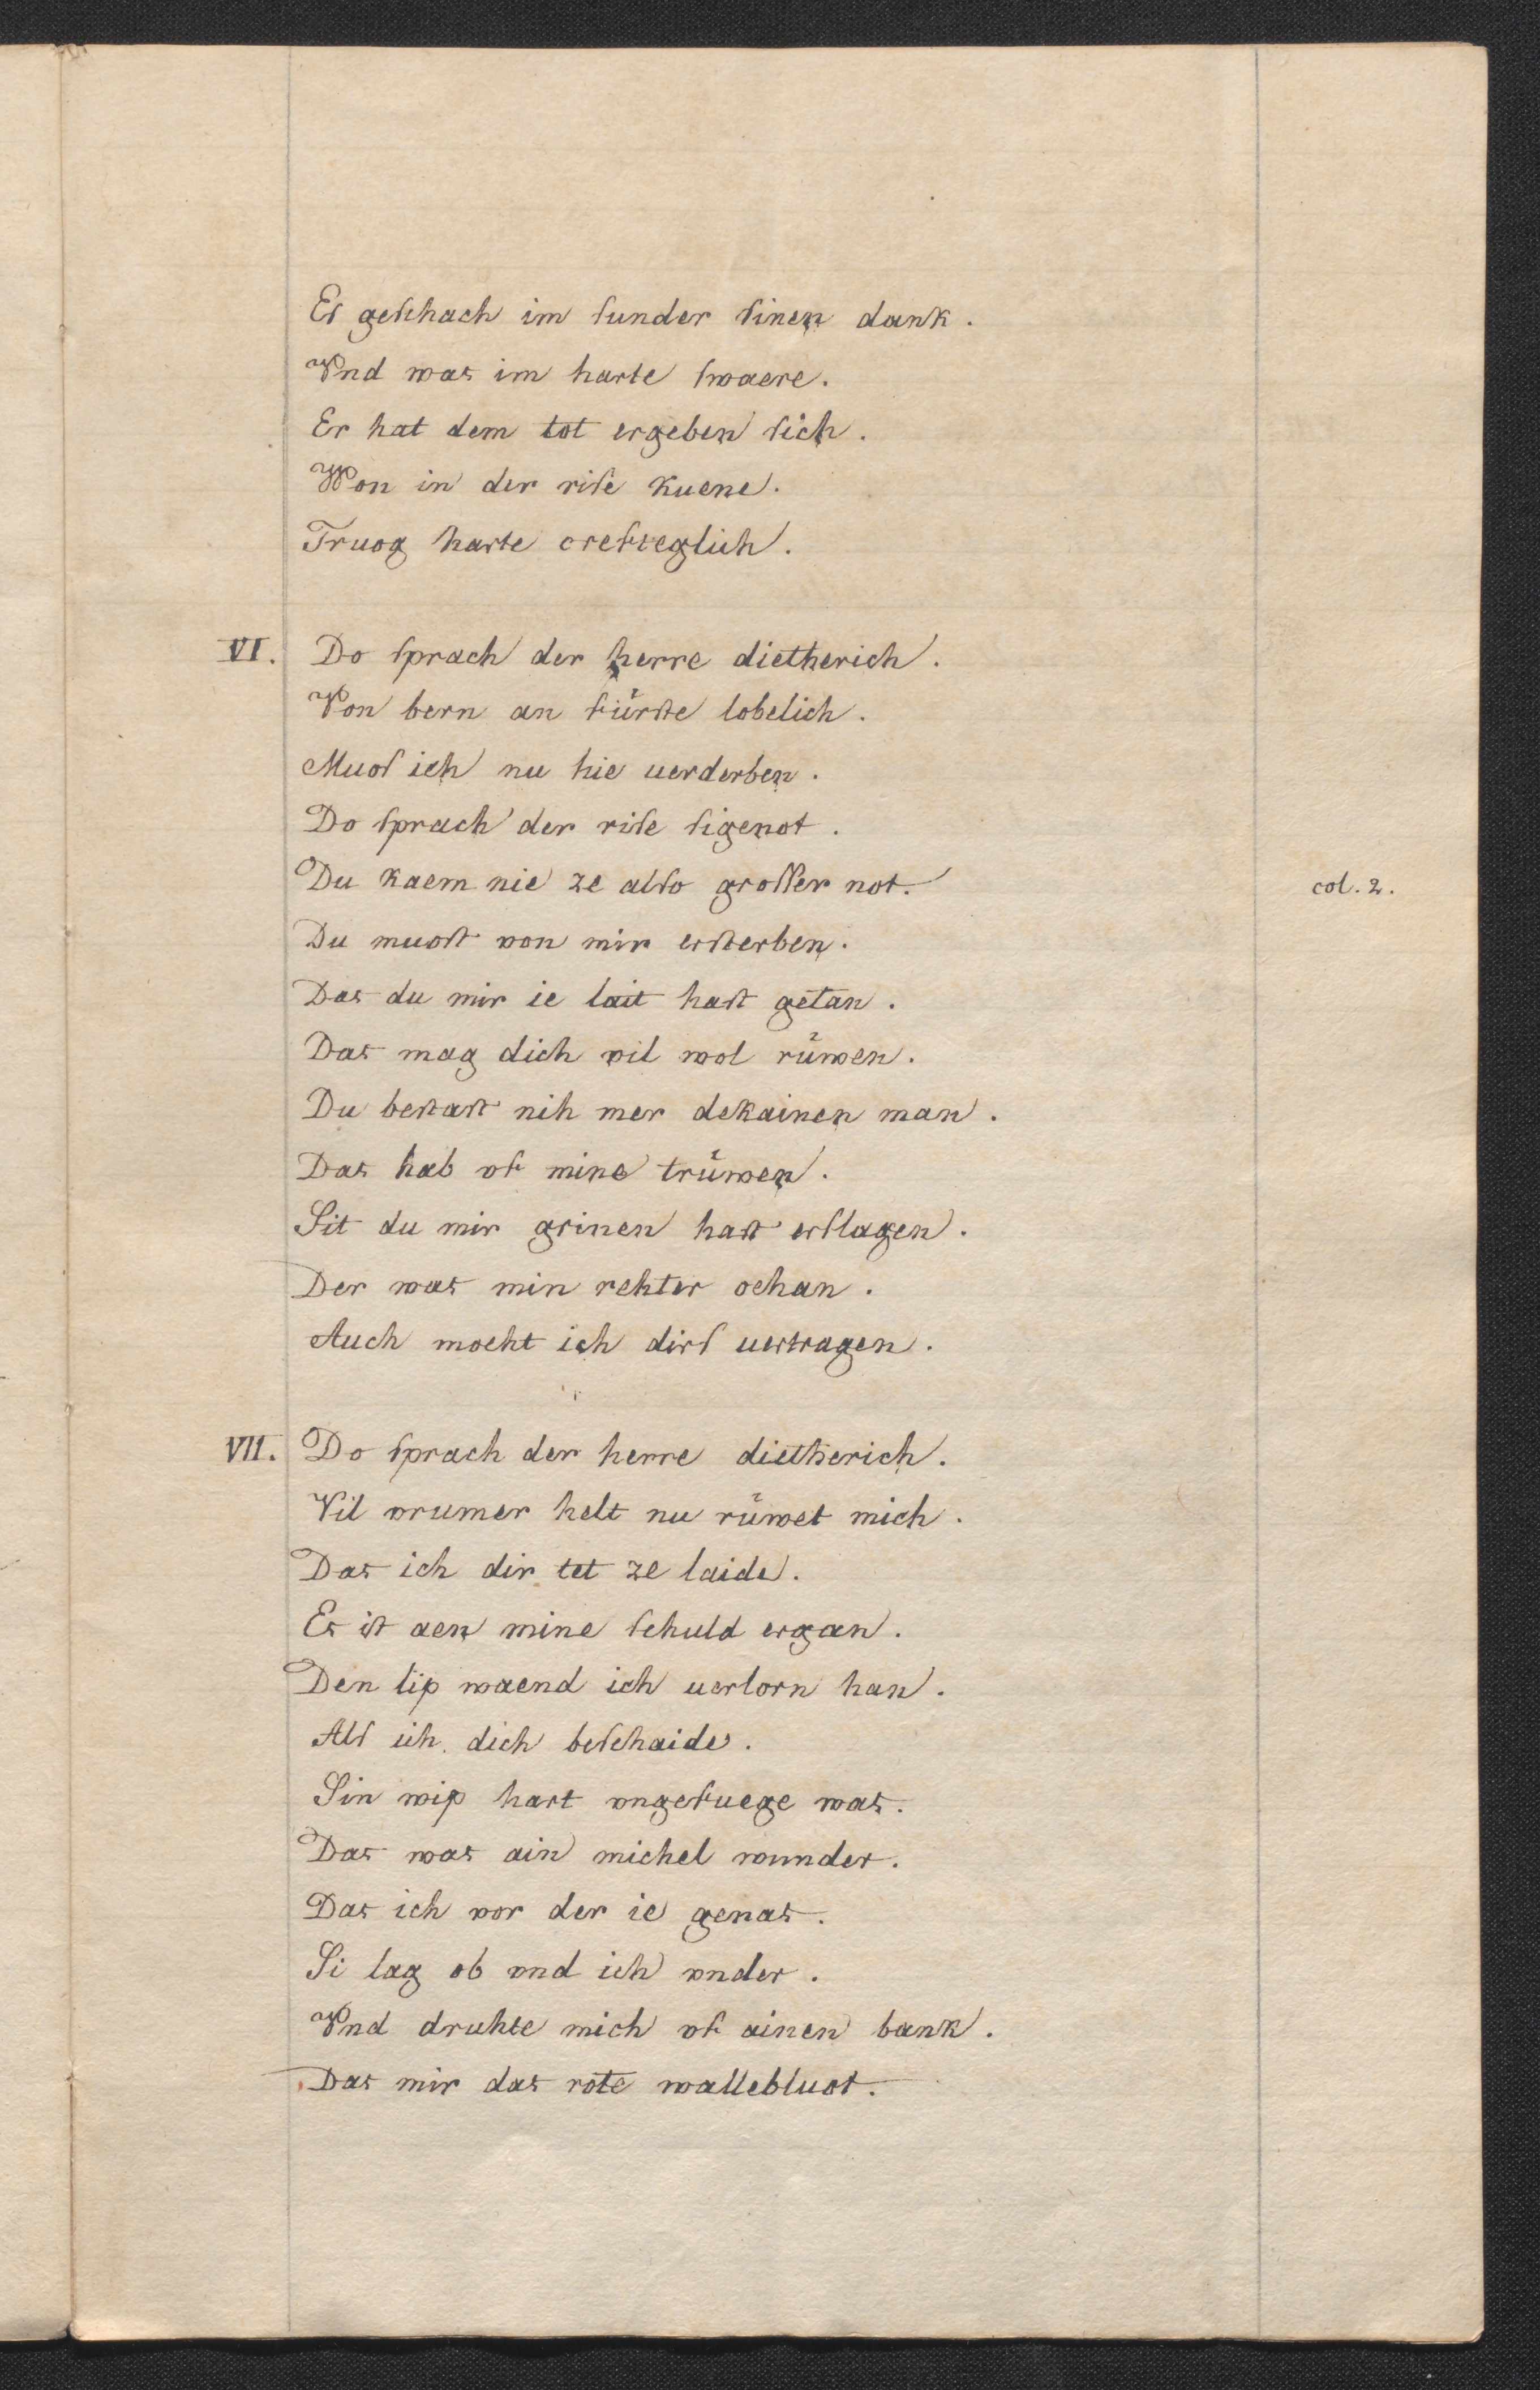 Es geſchach im ſunder ſinen dank.
Vnd was im harte ſwaere.
Er hat dem tot ergeben ſich.
Won in der riſe kuene.
Truog harte crefteglich.
VI. Do ſprach der herre dietherich.
Von bern an fürſte lobelich.
Muoſ ich nu hie uerderben.
Do ſprach der riſe ſigenot.
Du kaem nie ze alſo groſſer not.
col. 2.
Du muoſt von mir erſterben.
Das du mir ie lait haſt getan.
Das mag dich vil wol rüwen.
Du beſtaſt nih mer dekainen man.
Das hab vf mine trüwen.
Sit du mir grinen haſt erſlagen.
Der was min rehter oehan.
Auch moeht ich dirſ uertragen.
VII. Do ſprach der herre dietherich.
Vil vrumer helt nu rüwet mich.
Das ich dir tet ze laide.
Es iſt aen mine ſchuld ergan.
Den lip waend ich uerlorn han.
Alſ ich dich beſchaide.
Sin wip hart vngefuege was.
Das was ain michel wunder.
Das ich vor der ie genas.
Si lag ob vnd ich vnder.
Vnd druhte mich vf ainen bank.
Das mir das rote wallebluot.